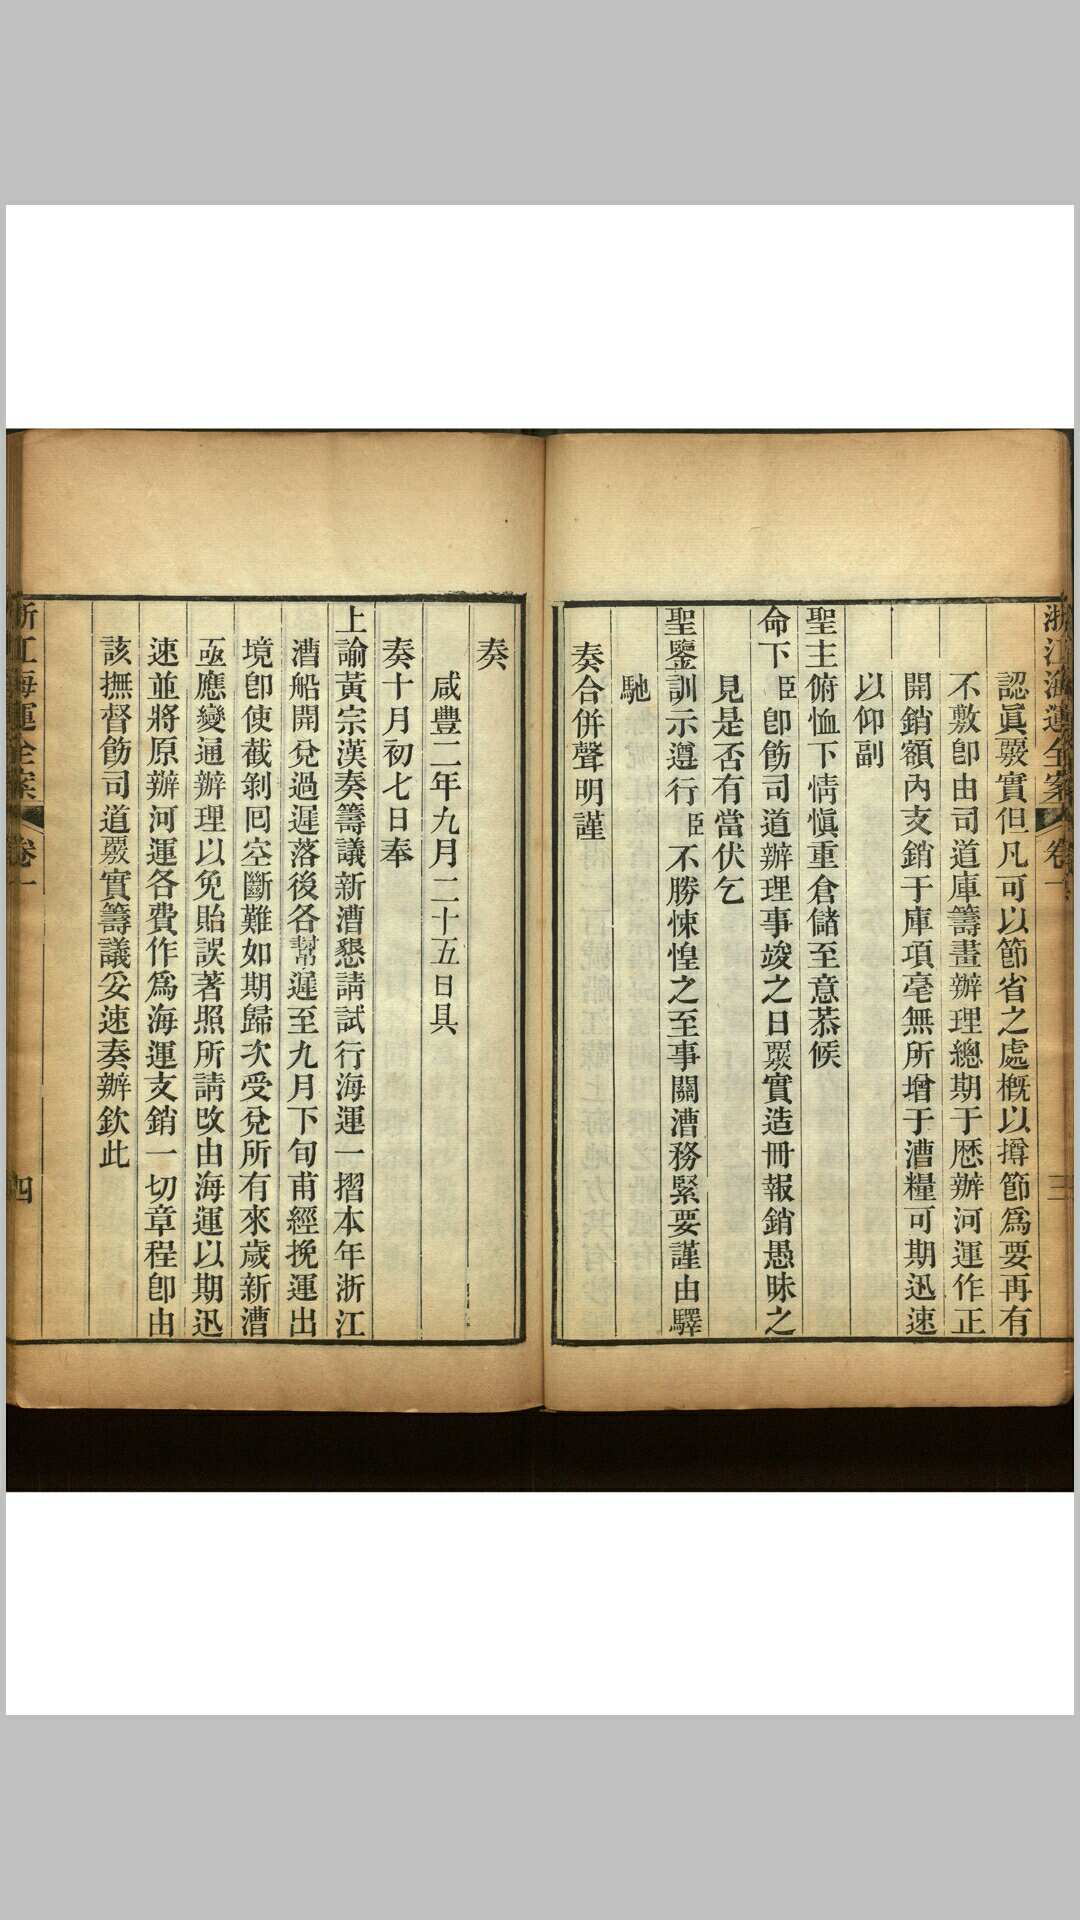 浙江海運全案 卷一 三
認眞覈實但凡可以節省之處槪以撙節爲要再有
不敷卽由司道庫籌畫辦理總期于歷辦河運作正
開銷額內支銷于庫項毫無所增于漕糧可期迅速
以仰副
聖主俯恤下情愼重倉儲至意恭候
命下臣卽飭司道辦理事竣之日覈實造冊報銷愚昧之
見是否有當伏乞
聖鑒訓示遵行臣不勝悚惶之至事關漕務緊要謹由驛
馳
奏合併聲明謹
奏
咸豐二年九月二十五日具
奏十月初七日奉
上諭黃宗漢奏籌議新漕懇請試行海運一摺本年浙江
漕船開兌過遲落後各幫遲至九月下旬甫經挽運出
境卽使截剝回空斷難如期歸次受兌所有來歲新漕
亟應變通辦理以免貽誤著照所請改由海運以期迅
速並將原辦河運各費作爲海運支銷一切章程卽由
該撫督飭司道覈實籌議妥速奏辦欽此
浙江海運全案 卷一 四